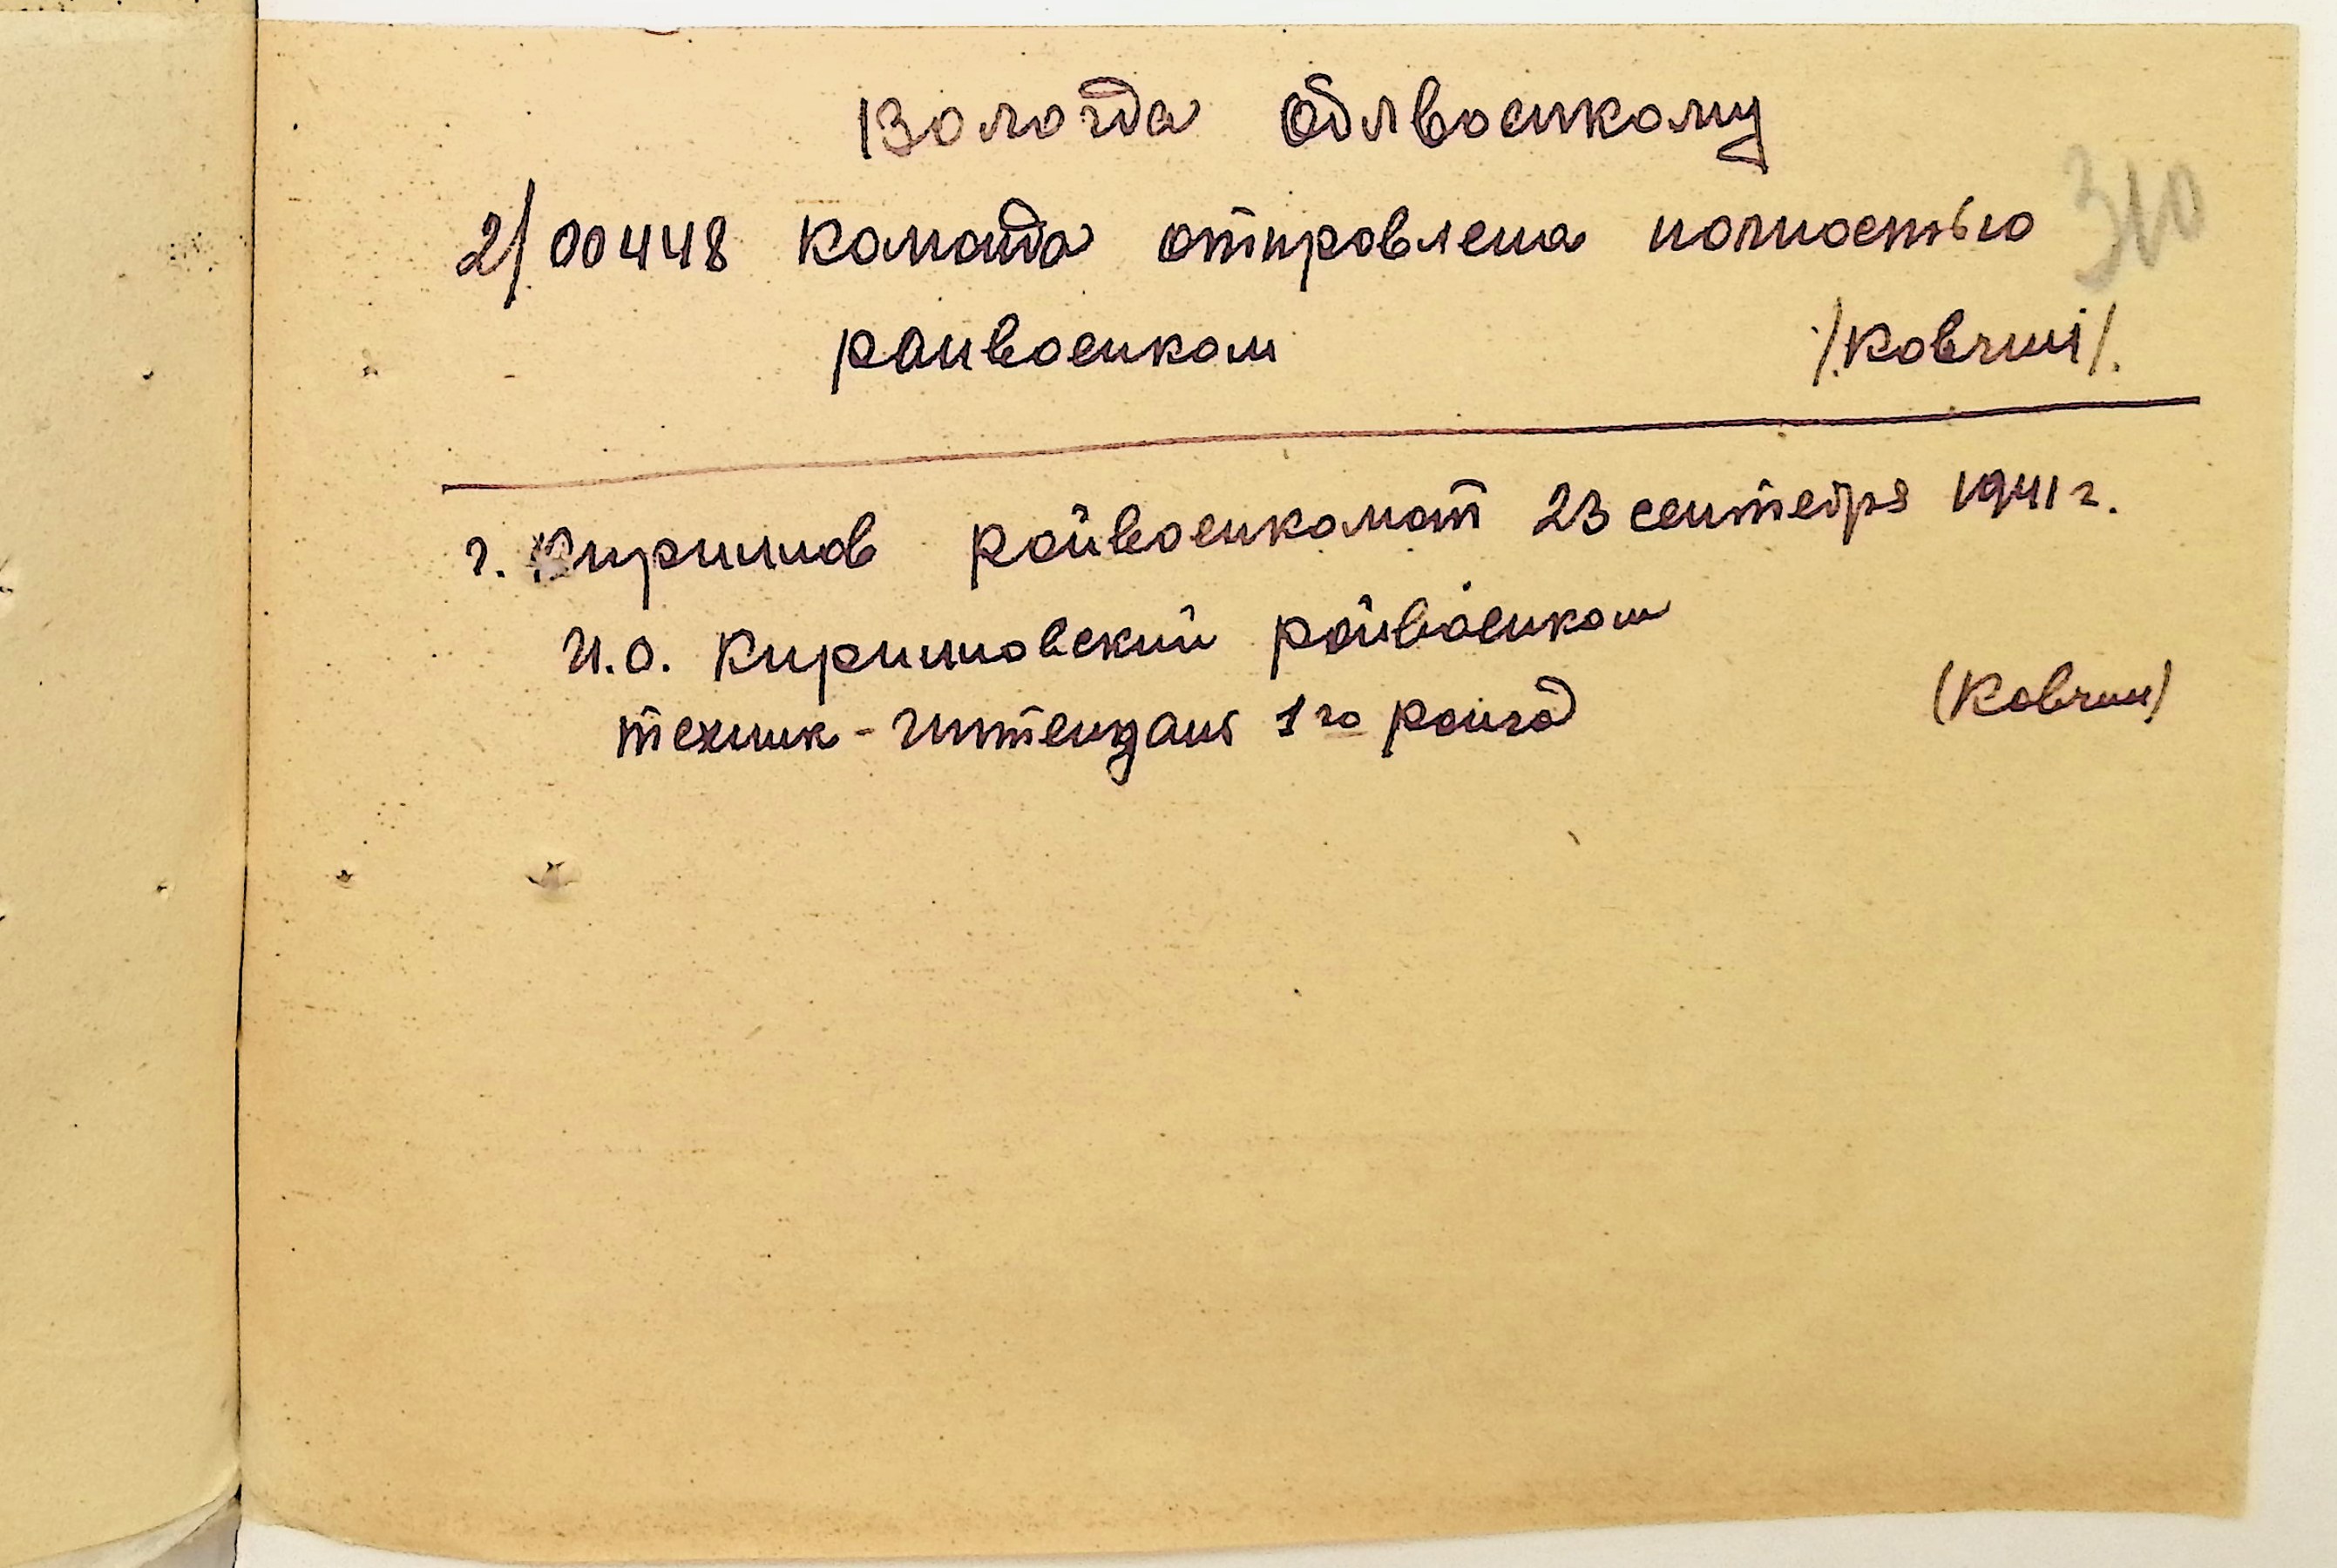 Вологда Облвоенкому
310
2/00448 команда отправлена полностью
райвоенком /.Ковчин/.
г. Кириллов райвоенкомат 23 сентября 1941 г.
И.О. Кирилловский райвоенком
техник-интендант 1го ранга (Ковчин)